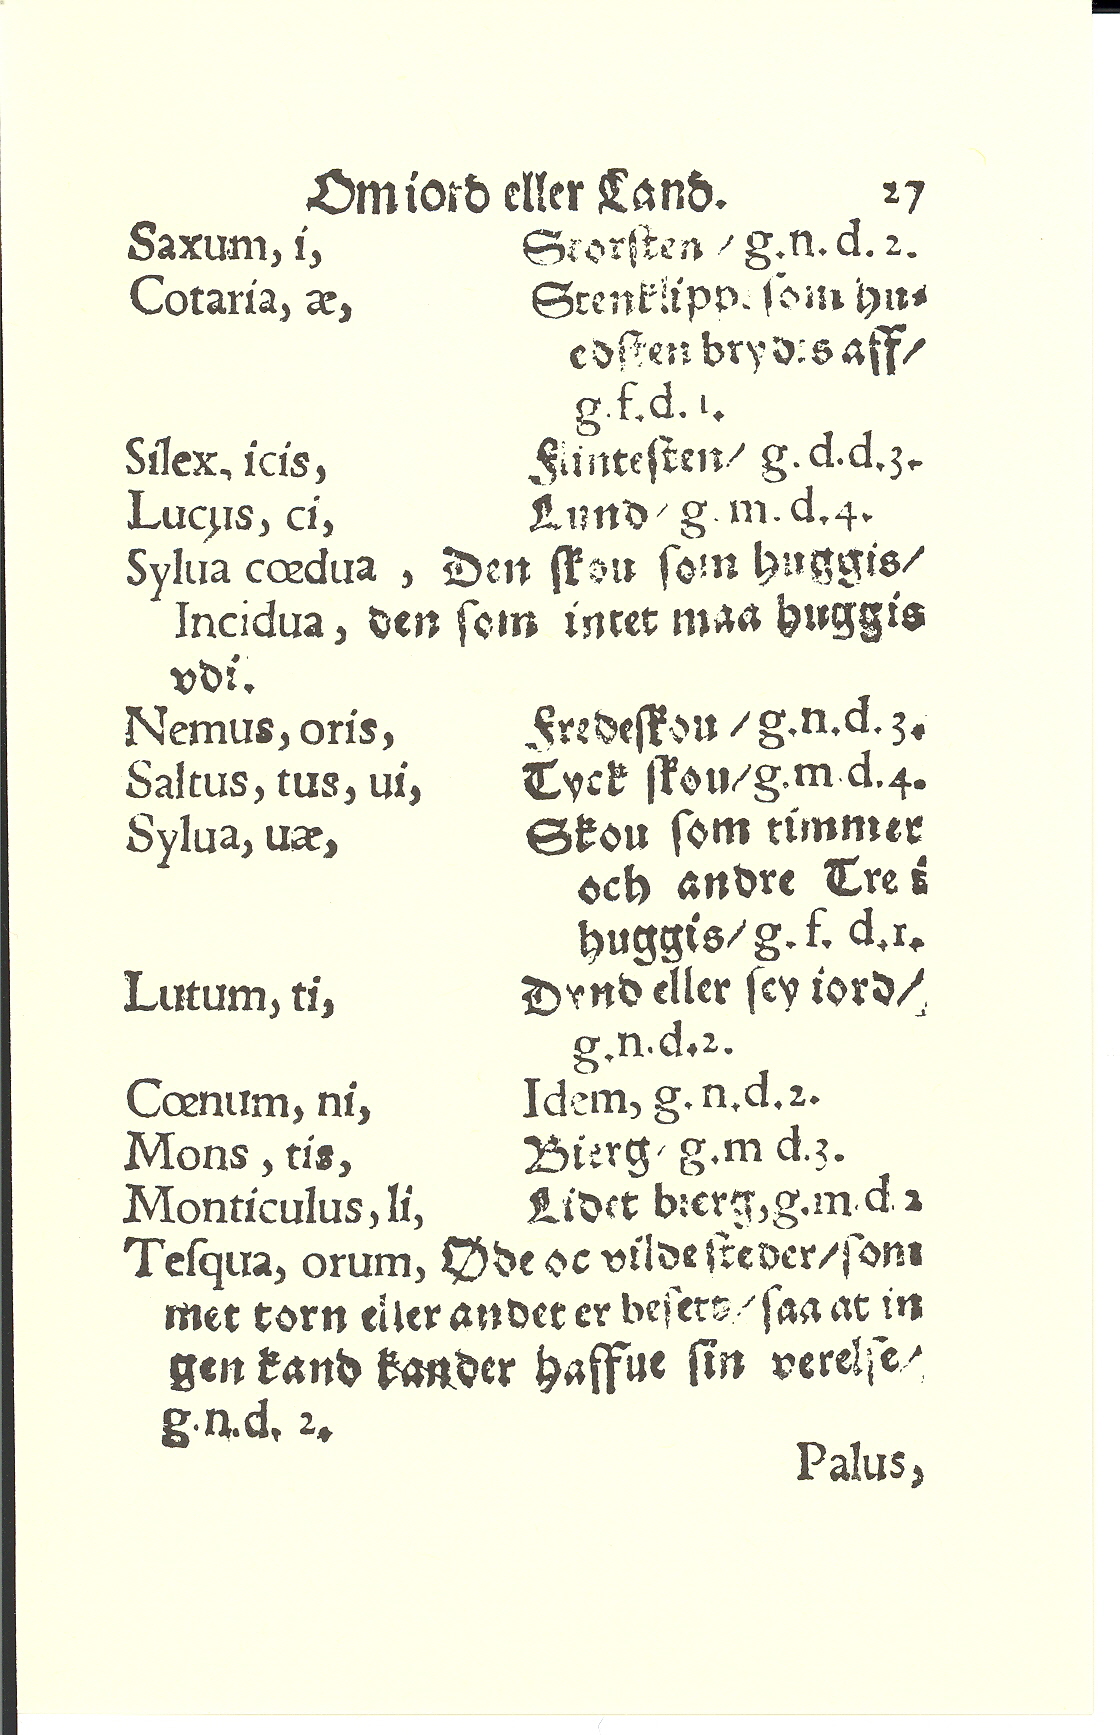 Om iord eller Land. 27
Saxum, i, Storſten / g.n. d. 2.
Cotaria, æ, Stenklipp. ſom hu⸗
edſten brydis aff/
g. f. d. 1.
Silex, icis, Flinteſten/ g. d.d.3.
Lucus, ci, Lund/ g. m. d. 4.
Sylua cœdua , Den ſkou ſom huggis/
Incidua, den ſom intet maa huggis
vdi.
Nemus, oris, Fredeſkou / g.n.d. 3.
Saltus, tus, ui, Tyck ſkou/g.m d.4.
Sylua, uæ, Skou ſom timmer
och andre Tre i
huggis/ g. f. d.1.
Lutum, ti, Dynd eller ſey iord/
g.n.d.2.
Cœnum, ni, Idem, g. n.d.2.
Mons , tis, Bierg/ g.m d.3.
Monticulus, li, Lidet bierg, g.m.d. 2
Teſqua, orum, Øde oc vilde ſteder/ſom
met torn eller andet er beſett/ ſaa at in
gen kand kander haffue ſin verelſe/
g.n.d. 2.
Palus,